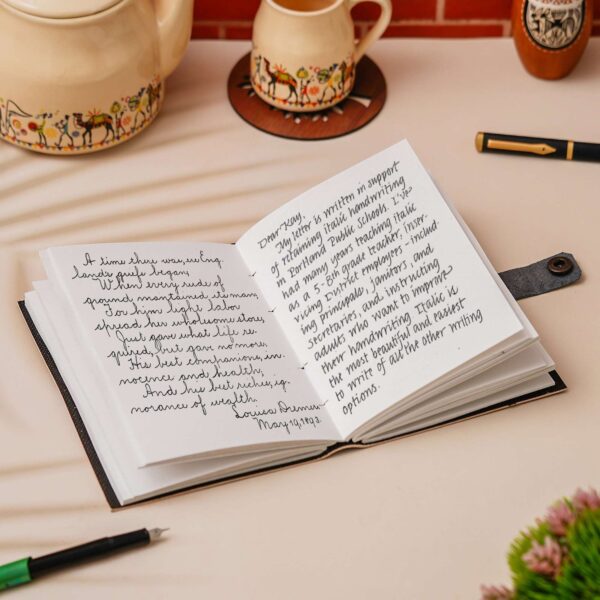 A time there was, ere Eng-
land's griefs began,
When every rude of
ground maintained its man;
For him light labor
spread her wholesome store,
Just gave what life re-
quired, but gave no more.
His best companions, in-
nocence and health,
And his best riches, ig-
norance of wealth.
Louisa
May 19, 1893.
Dear Kay,
My letter is written in support
of retaining italic handwriting
in Portland Public Schools. I've
had many years teaching italic
as a 5-8th grade teacher, inser-
vicing District employees - includ-
ing principals, janitors, and
secretaries, and instructing
adults who want to improve
their handwriting. Italic is
the most beautiful and easiest
to write of all the other writing
options.